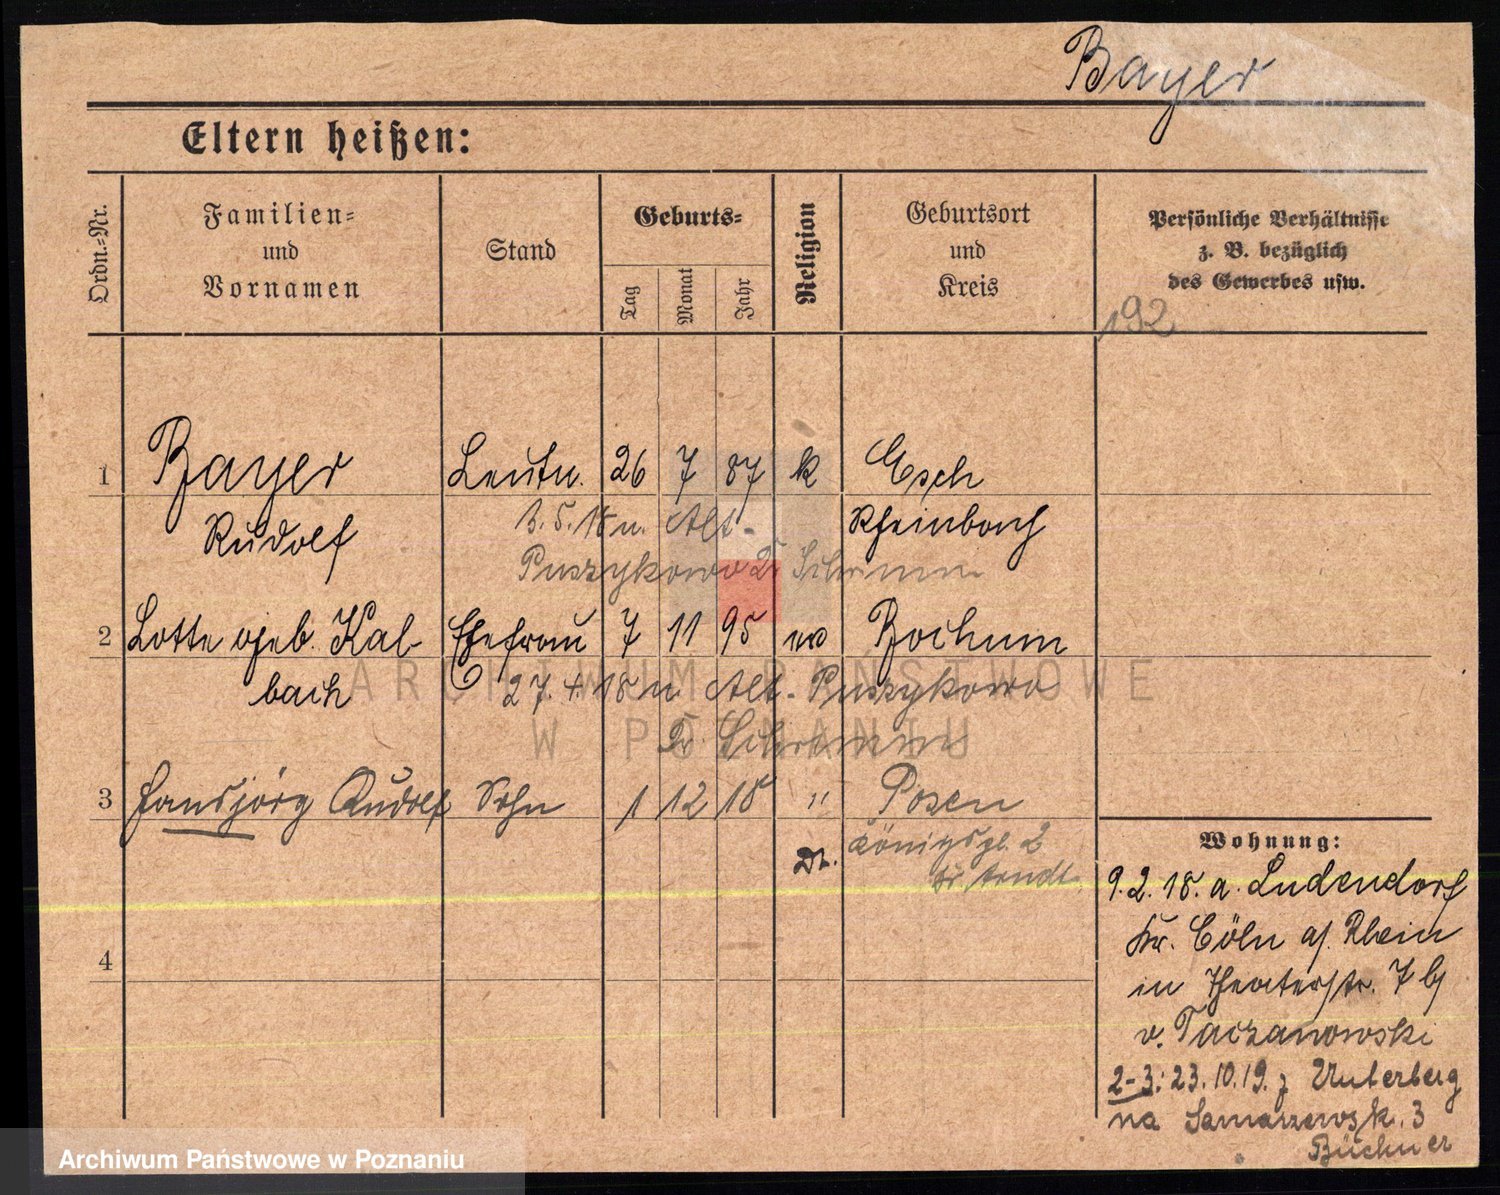 Bayer
Eltern heißen:
Ordn.-Nr.
Familien-
und
Vornamen
Stand
Geburts-
Tag
Monat
Jahr
Religion
Geburtsort
und
Kreis
Persönliche Verhältnisse
z. B. bezüglich
des Gewerbes usw.
192
1 Bayer Leutn. 26 7 87 k Esch
Rudolf Rheinbach
3. 5. 18 n. Alt-
Puszykowo Kr Schrimm
2 Lotte geb. Kal- Ehefrau 7 11 95 ev Bochum
bach
27. 4. 18 n. Alt-Puszykowo
Kr. Schrimm
3 Hansjörg Rudolf Sohn 1 12 18 " Posen
Dt. Königspl. 2
Arndt
4
Wohnung:
9. 2. 18. a. Ludendorf
Kr. Cöln a/ Rhein
in Theaterstr. 7 b/
v. Taczanowski
2-3: 23. 10. 19. z Unterberg
na Samarzewsk. 3
Büchner
ARCHIWUM PAŃSTWOWE
W POZNANIU
Archiwum Państwowe w Poznaniu